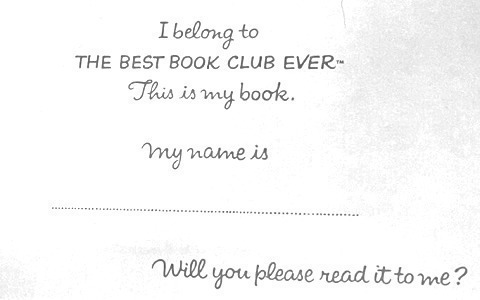 I belong to
THE BEST BOOK CLUB EVER™
This is my book.
My name is
Will you please read it to me?